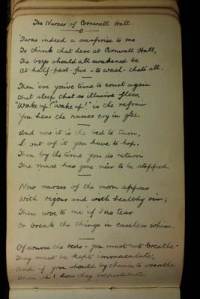 The Nurses of Cornwall Hall
'Twas indeed a surprise to me
To think that here at Cornwall Hall,
The boys should all awakened be
At half-past-five - to wash - that's all.
Then you're time to count again
And sleep that so illusive flees,
"Wake up! Wake up!" is the refrain
You hear the nurses cry in glee.
And now it is the bed to turn,
And out of it you have to hop,
Then by the time you do return
The nurse has gone
Now nurses of the morn appear
With vigour and with healthy vim,
Then woe to me if I
To break the things in careless whim.
Of course the beds - you must not breathe -
They must be kept immaculate,
And if you should by chance to